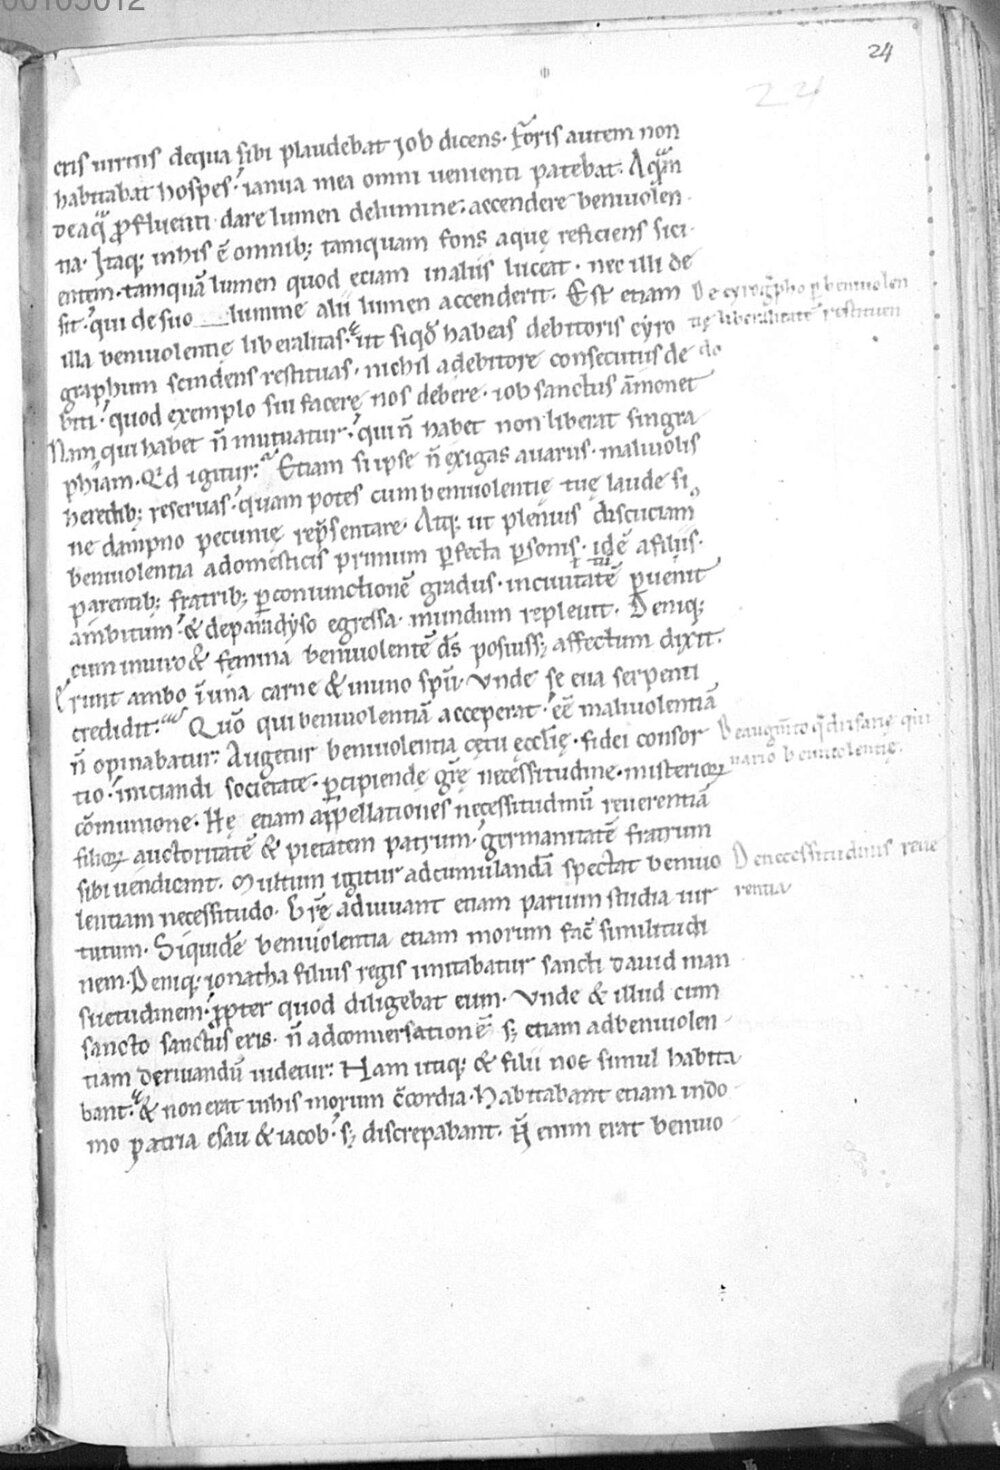 00105012
24
24
ctis uirtus dequa sibi plaudebat iob dicens. Foris autem non
habitabat hospes. ianua mea omni uenienti patebat. Aquam
de aqua ꝓfluenti. dare lumen delumine. accendere beniuolen
tia. Itaq; inhis ē omnib; tamquam fons aquę reficiens siti
entem. tamquā lumen quod etiam inaliis luceat. nec illi de
sit. qui de suo lumine alii lumen accenderit. Est etiam
illa beniuolentię liberalitas. ut siqđ habeas debitoris cyro
graphum scindens restituas. nichil adebitore consecutus de
biti. quod exemplo sui facere nos debere. iob sanctus āmonet
Nam qui habet ñ mutuatur. qui ñ habet non liberat singra
phiam. Qd igitur. Etiam si ipse ñ exigas auarus. maliuolis
heredib; reseruas. quam potes cum beniuolentię tuę laude si
ne dampno pecunię rep̄sentare. Atq; ut plenius discutiam
beniuolentia adomesticis primum ꝑfecta ꝑsonis. idē afiliis.
parentib; fratrib; ꝑ coniunctionē gradus. inciuitatē ꝑuenit
ambitum. & deparadyso egressa. mundum repleuit. Deniq;
cum inuiro & femina beniuolentē ds̄ posuiss; affectum dixit.
Erunt ambo ī una carne & inuno spū. Vnde se eua serpenti
credidit. Quō qui beniuolentiā acceperat. eē maliuolentiā
ñ opinabatur. Augetur beniuolentia cętu ęcclię. fidei consor
tio. iniciandi societate. ꝑcipiendę grę necessitudine. misterioꝝ
cōmunione. Hę etiam appellationes necessitudinū reuerentiā
filioꝝ auctoritatē & pietatem patrum. germanitatē fratrum
sibi uendicant. Multum igitur adcumulandā spectat beniuo
lentiam necessitudo. adiuuant etiam parium studia uir
tutum. Siquidē beniuolentia etiam morum facit similitudi
nem. Deniq; ionatha filius regis imitabatur sancti dauid man
suetudinem. ꝓpter quod diligebat eum. Vnde & illud cum
sancto sanctus eris. ñ adconuersationē s; etiam adbeniuolen
tiam deriuandū uidetur. Nam utiq; & filii noe simul habita
bant. & non erat inhis morum c̄cordia. Habitabant etiam indo
mo patria esau & iacob. s; discrepabant. Ñ enim erat beniuo
De cyrogꝑho ꝑ beniuolen
tię liberalitatē restituen
do
De augm̄to
nario beniuolentię.
De necessitudinis reue
rentia